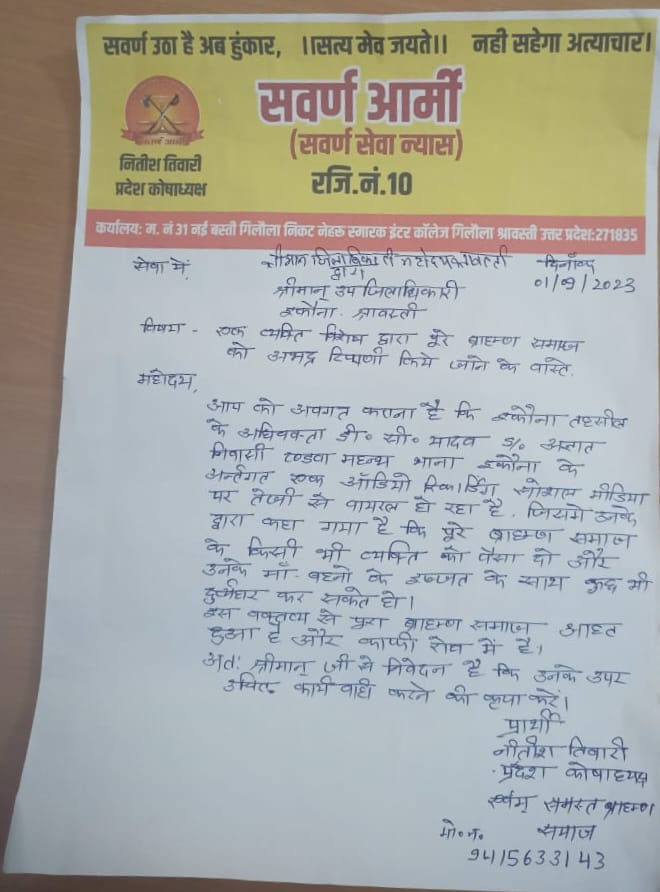 सवर्ण उठा है अब हुंकार, ।।सत्य मेव जयते।। नही सहेगा अत्याचार।
सवर्ण आर्मी
(सवर्ण सेवा न्यास)
रजि.नं.10
सवर्ण आर्मी
नितीश तिवारी
प्रदेश कोषाध्यक्ष
कर्यालय: म. नं 31 नई बस्ती गिलौला निकट नेहरू स्मारक इंटर कॉलेज गिलौला श्रावस्ती उत्तर प्रदेश:271835
सेवा में, श्रीमान जिलाधिकारी महोदय श्रावस्ती दिनाँक
द्वारा 01/09/2023
श्रीमान् उपजिलाधिकारी
इकौना- श्रावस्ती
विषय - एक व्यक्ति विशेष द्वारा पूरे ब्राह्मण समाज
को अभद्र टिप्पणी किये जाने के वास्ते.
महोदय,
आप को अवगत कराना है कि इकौना तहसील
के अधिवक्ता डी० सी० यादव S/o अज्ञात
निवासी टण्डवा महन्थ थाना इकौना के
अर्न्तगत एक ऑडियो रिकार्डिंग सोशल मीडिया
पर तेजी से वायरल हो रहा है. जिसमे उनके
द्वारा कहा गया है कि पूरे ब्राह्मण समाज
के किसी भी व्यक्ति को पैसा दो और
उनके माँ-बहनो के इज्जत के साथ कुछ भी
कर सकते हो।
इस वक्तव्य से पूरा ब्राह्मण समाज आहत
हुआ है और काफी रोष में है।
अतः श्रीमान् जी से निवेदन है कि उनके उपर
उचित कार्यवाही करने की कृपा करें।
प्रार्थी
नीतीश तिवारी
प्रदेश कोषाध्यक्ष
एवंम् समस्त ब्राह्मण
मो.न. समाज
9415633143